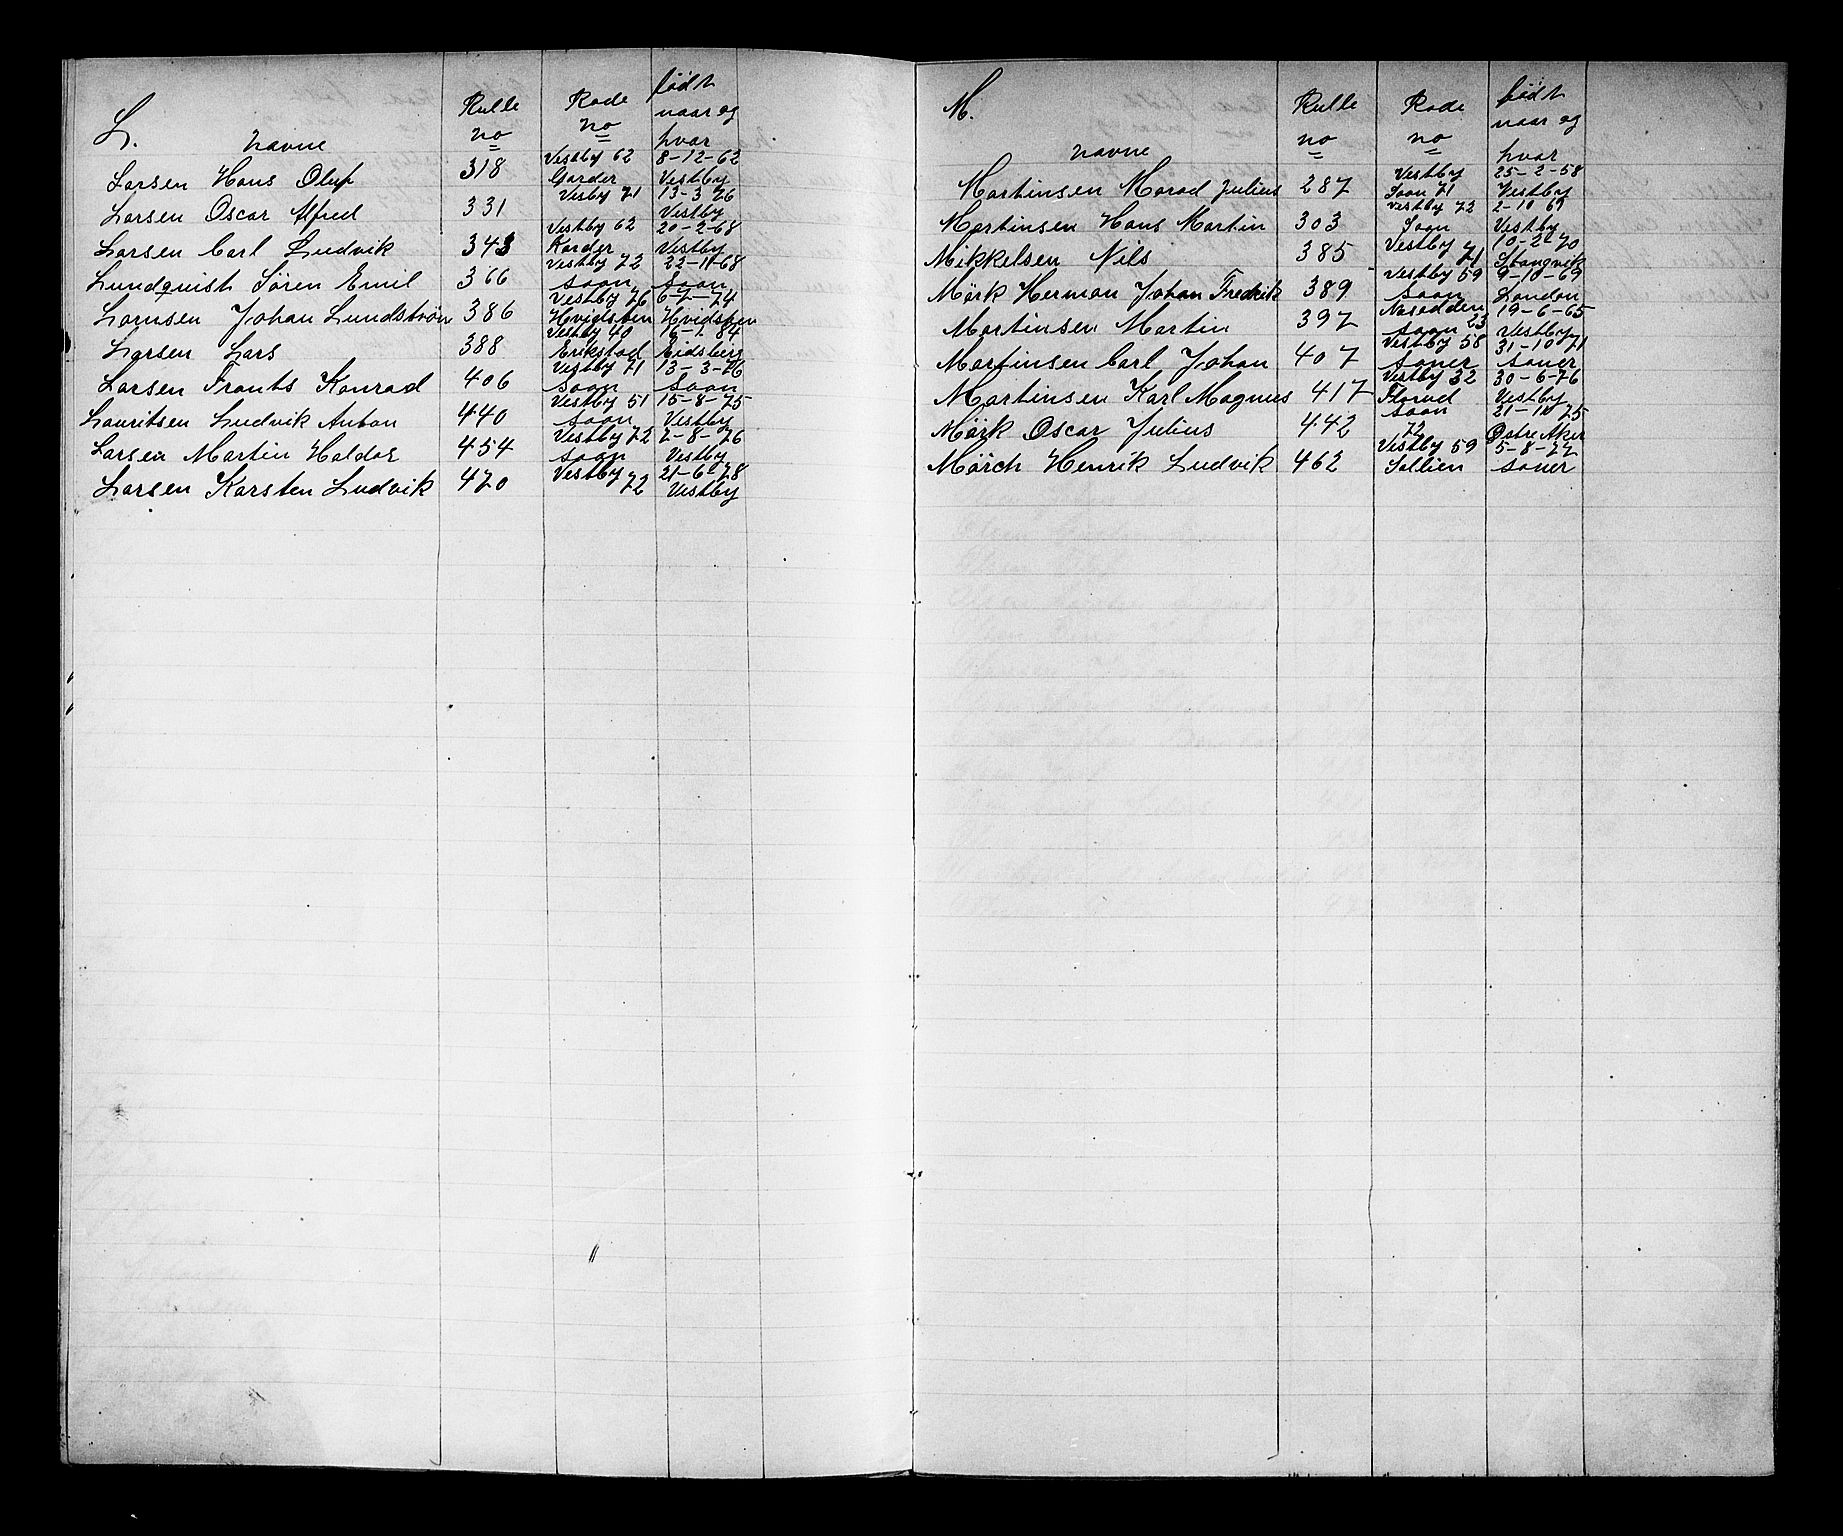 L.
Navne
Rulle no
Rode no
født naar og hvor
Larsen Hans Oluf 318 Vestby 62 Garder 8-12-62 Vestby
Larsen Oscar Alfred 331 Vesby 71 13-3 76 Vestby
Larsen Carl Ludvik 343 Vestby 62 Karder 20-2-68 Vestby
Lundquist Sören Emil 366 Vestby 72 Soon 22-11-68 Soon
Larnsen Johan Lundström 386 Vestby 76 Hvidsten 6-7-74 Hvidsten
Larsen Lars 388 Vestby 40 Erikstad Eidsberg
Larsen Frants Konrad 406 Vestby 71 Soon 13-3-76 Soon
Lauritsen Ludvik Anton 440 Vestby 51 Soon 15-8-75 Vestby
Larsen Martin Haldor 454 Vestby 72 Soon 2-8-76 Vestby
Larsen Karsten Ludvik 470 Vestby 72 21-6-78 Vestby
M.
Navne
Rulle no
Rode no
født naar og hvor
Martinsen Marad Julius 287 Vestby Soon 71 25-2-58 Vestby
Martinsen Hans Martin 303 Vestby 72 Soon 2-10 69 Vestby
Mikkelsen Nils 385 Vestby 71 10-2-70 Stangvik
Mörk Herman Johan Fredrik 389 Vestby 59 Soon 9-10-69 London
Martinsen Martin 397 Nesodden Soon 23 19-6-65 Vestby
Martinsen Carl Johan 407 Vestby 58 Soner 31-10 71 Soner
Martinsen Karl Magnus 417 Vestby 32 Florud 30-6-76 Vestby
Mörk Oscar Julius 442 Soon 72 21-10 75 Østre Aker
Mörch Henrik Ludvik 462 Vestby 59 Sollien 5-8-77 Soner